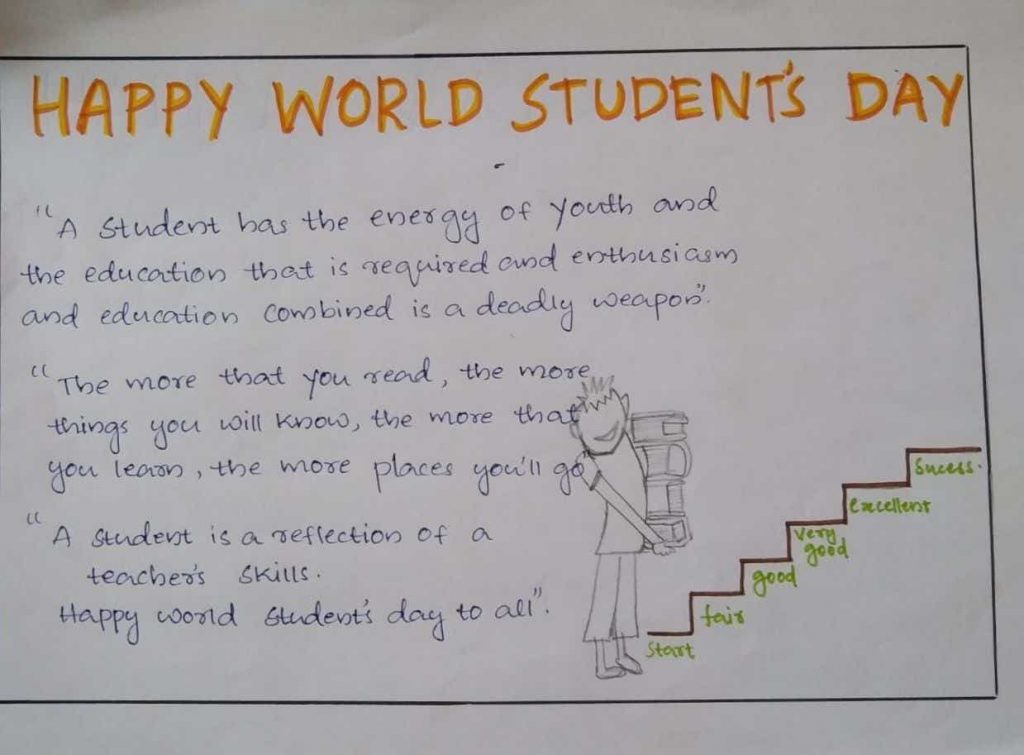 HAPPY WORLD STUDENT'S DAY
"A student has the energy of youth and
the education that is required and enthusiasm
and education combined is a deadly weapon".
"The more that you read, the more
things you will know, the more that
you learn, the more places you'll go"
"A student is a reflection of a
teacher's skills.
Happy world student's day to all".
Start
fair
good
very
good
excellent
Sucess.